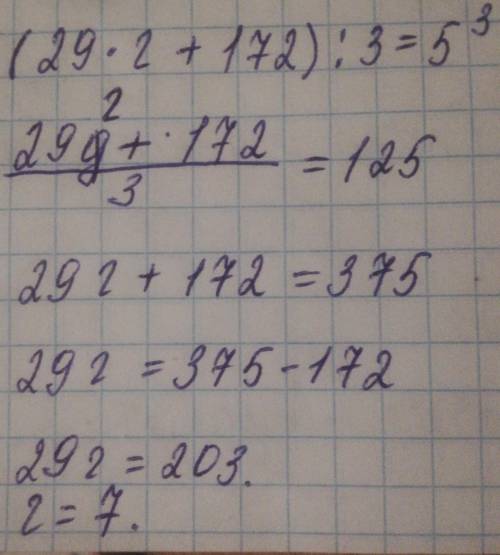 (29·г + 172) : 3 = 5³
29г + 172 / 3 = 125
29г + 172 = 375
29г = 375 - 172
29г = 203.
г = 7.